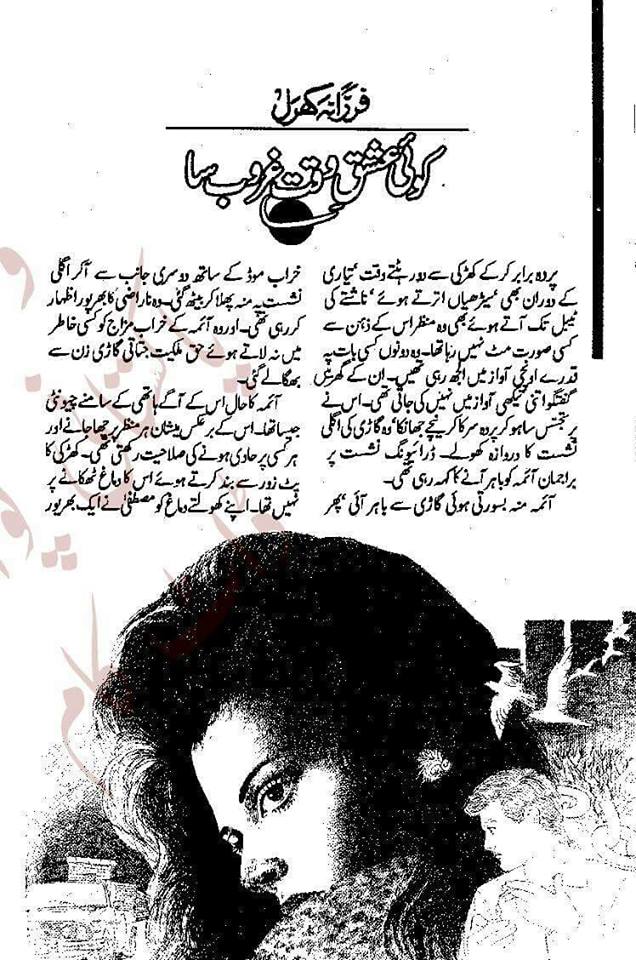 فرزانہ کھرل
کوئی عشق وقت غروب سا
پردہ برابر کر کے کھڑکی سے دور ہٹتے وقت ' تیاری
کے دوران بھی ' سیڑھیاں اترتے ہوئے ' ناشتے کی
ٹیبل تک آتے ہوئے بھی وہ منظر اس کے ذہن سے
کسی صورت مٹ نہیں رہا تھا۔ وہ دونوں کسی بات پہ
قدرے اونچی آواز میں الجھ رہی تھیں۔ ان کے گھر میں
گفتگو اتنی تیکھی آواز میں نہیں کی جاتی تھی۔ اس نے
پر تجسس سا ہو کر پردہ سر کا کر نیچے جھانکا وہ گاڑی کی اگلی
نشست کا دروازہ کھولے۔ ڈرائیونگ نشست پر
براجمان آئمہ کو باہر آنے کا کہہ رہی تھی۔
آئمہ منہ بسورتی ہوئی گاڑی سے باہر آئی ' پھر
خراب موڈ کے ساتھ دوسری جانب سے آکر اگلی
نشست پہ منہ پھلا کر بیٹھ گئی۔ وہ ناراضی کا بھرپور اظہار
کر رہی تھی۔ اور وہ آئمہ کے خراب مزاج کو کسی خاطر
میں نہ لاتے ہوئے حق ملکیت جتاتی گاڑی زن سے
بھگا لے گئی۔
آئمہ کا حال اس کے آگے ہاتھی کے سامنے چیونٹی
جیسا تھا۔ اس کے برعکس بیشان ہر منظر پر چھا جانے اور
ہر کسی پر حاوی ہونے کی صلاحیت رکھتی تھی۔ کھڑکی کا
پٹ زور سے بند کرتے ہوئے اس کا دماغ ٹھکانے پر
نہیں تھا۔ اپنے کھولتے دماغ کو مصطفیٰ نے ایک بھرپور